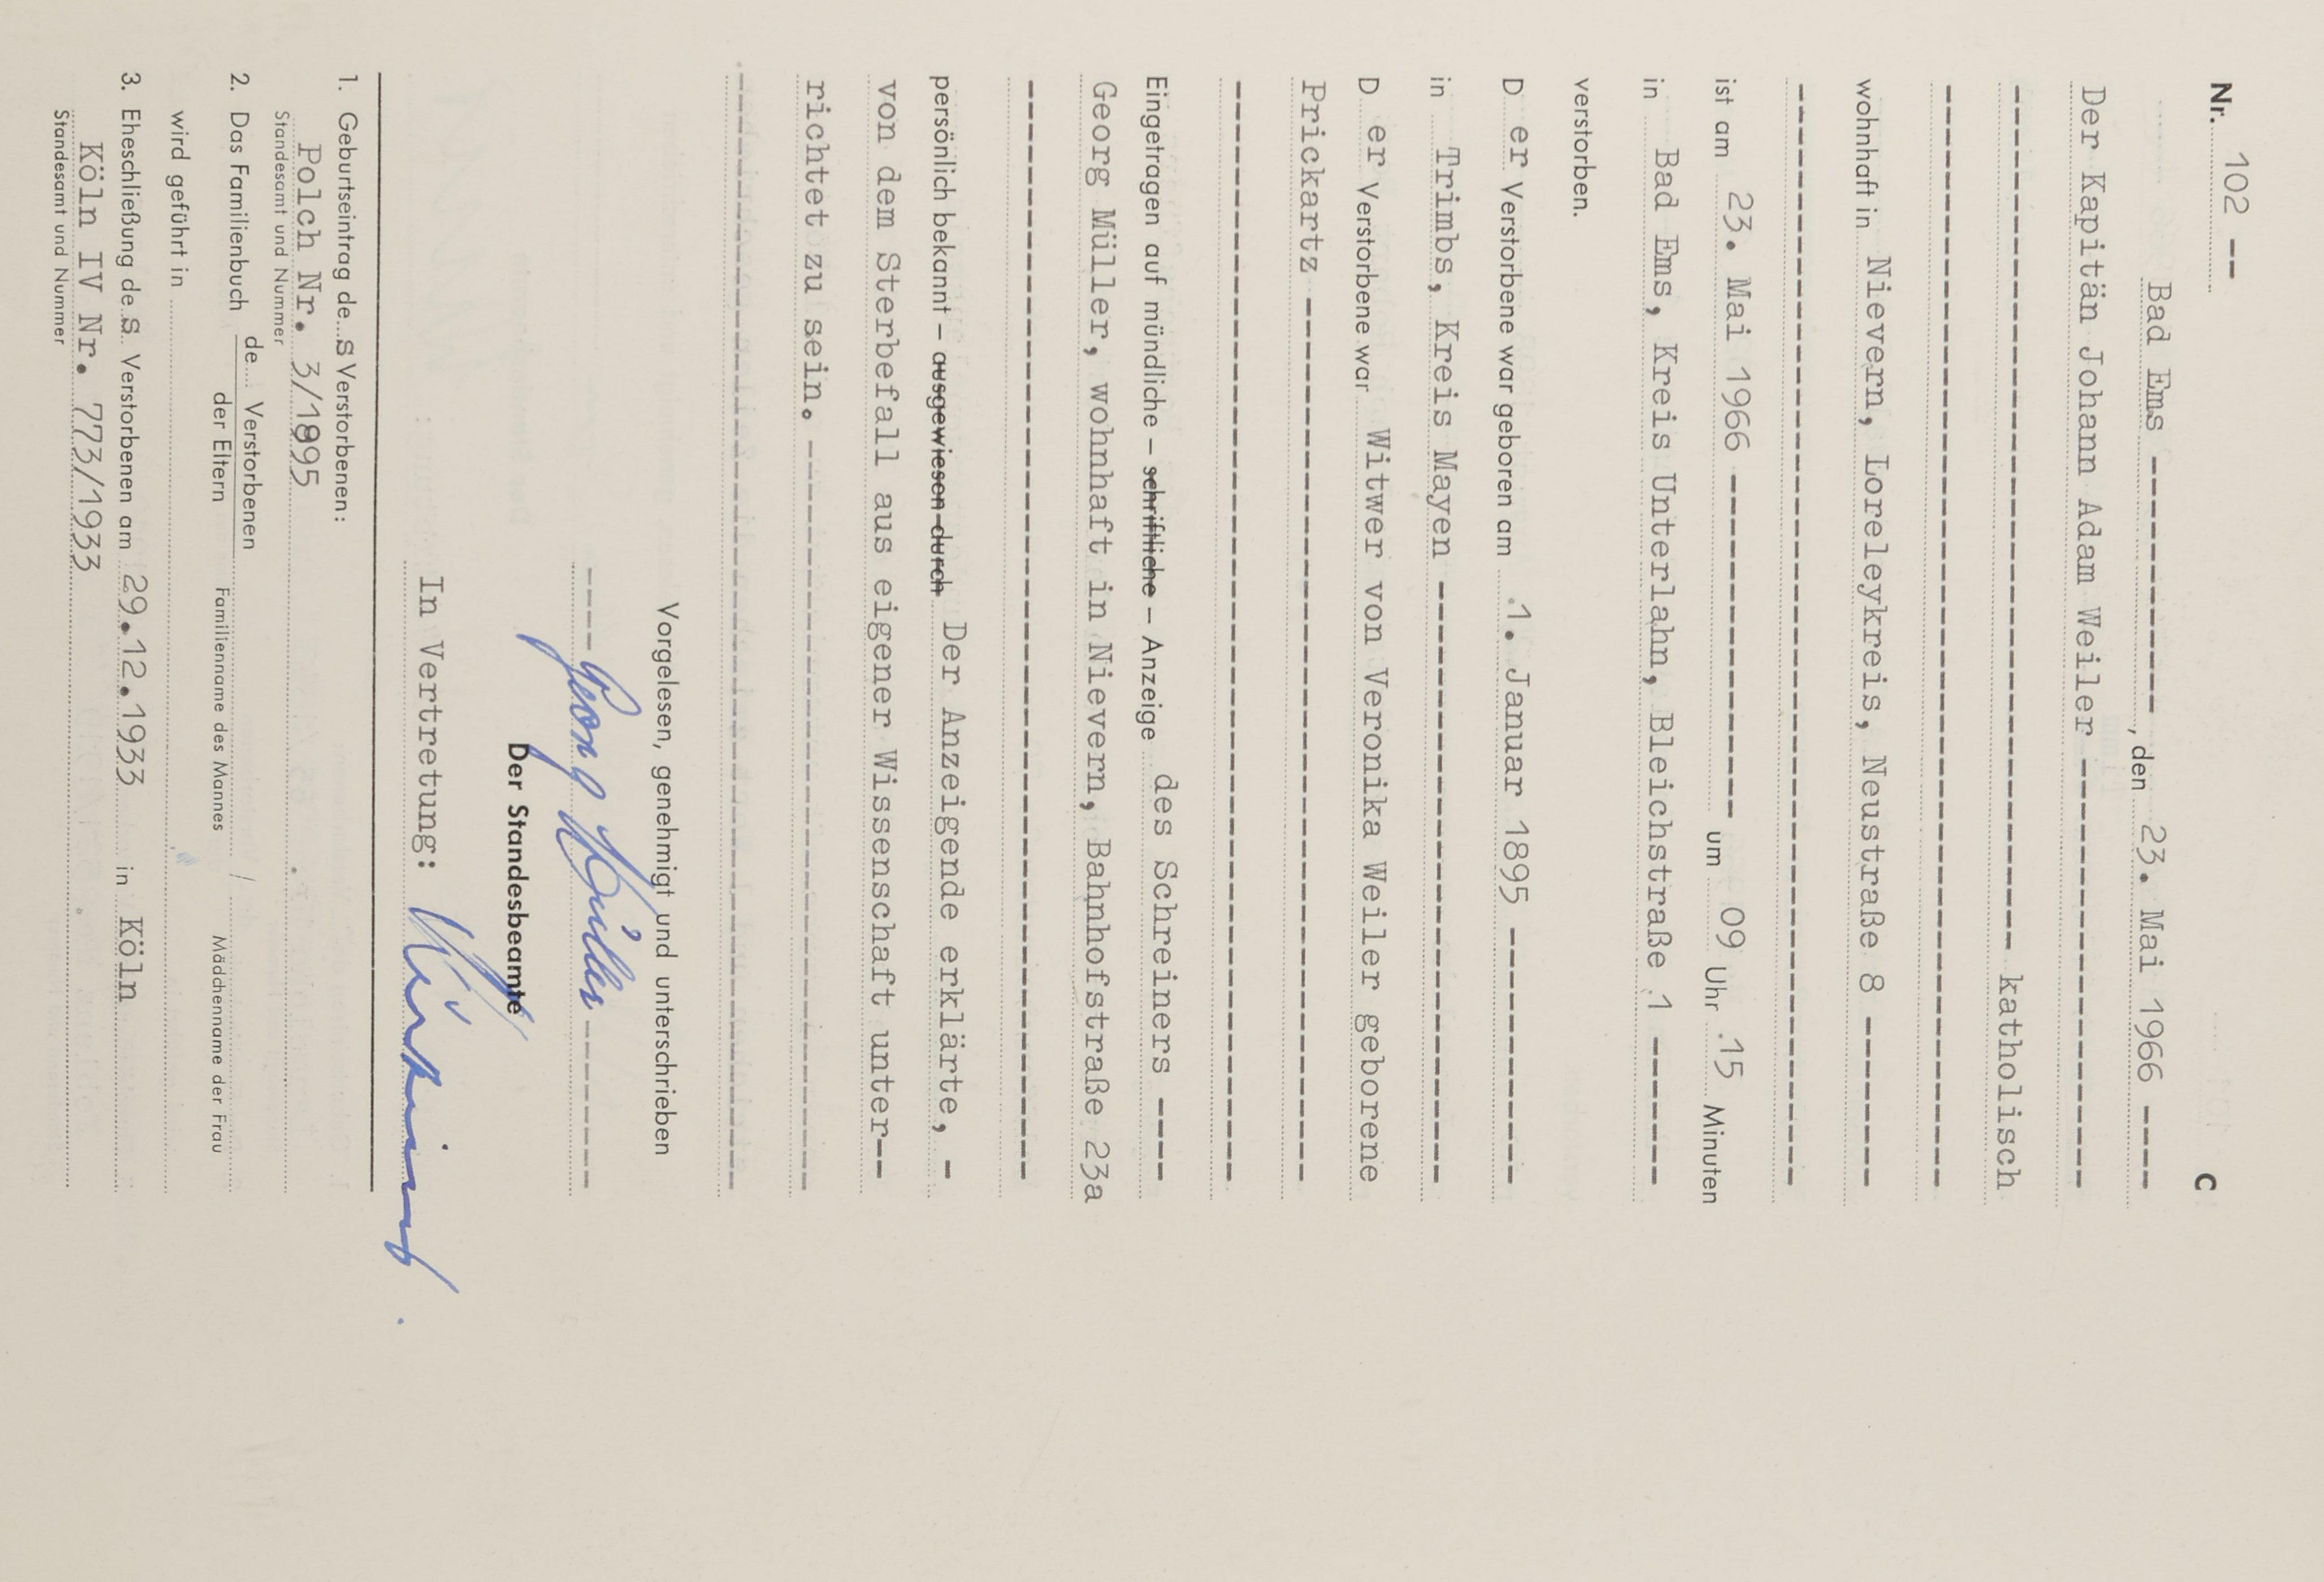 Nr. 102 --
C
Bad Ems ----------, den 23. Mai 1966 ----
Der Kapitän Johann Adam Weiler ----------------
-------------------------------- katholisch
wohnhaft in Nievern, Loreleykreis, Neustraße 8 -------
ist am 23. Mai 1966 -------------- um 09 Uhr 15 Minuten
in Bad Ems, Kreis Unterlahn, Bleichstraße 1 ------
verstorben.
D er Verstorbene war geboren am 1. Januar 1895 ----------
in Trimbs, Kreis Mayen ------------------------
D er Verstorbene war Witwer von Veronika Weiler geborene
Prickartz -----------------------------------
Eingetragen auf mündliche – schriftliche – Anzeige des Schreiners ----
Georg Müller, wohnhaft in Nievern, Bahnhofstraße 23a
persönlich bekannt – ausgewiesen durch Der Anzeigende erklärte, -
von dem Sterbefall aus eigener Wissenschaft unter--
richtet zu sein. ------------------------------
Vorgelesen, genehmigt und unterschrieben
---- Georg Müller -------
Der Standesbeamte
In Vertretung:
1. Geburtseintrag de s Verstorbenen:
Polch Nr. 3/1895
Standesamt und Nummer
2. Das Familienbuch de Verstorbenen
der Eltern Familienname des Mannes / Mädchenname der Frau
wird geführt in
3. Eheschließung de s Verstorbenen am 29.12.1933 in Köln
Köln IV Nr. 773/1933
Standesamt und Nummer